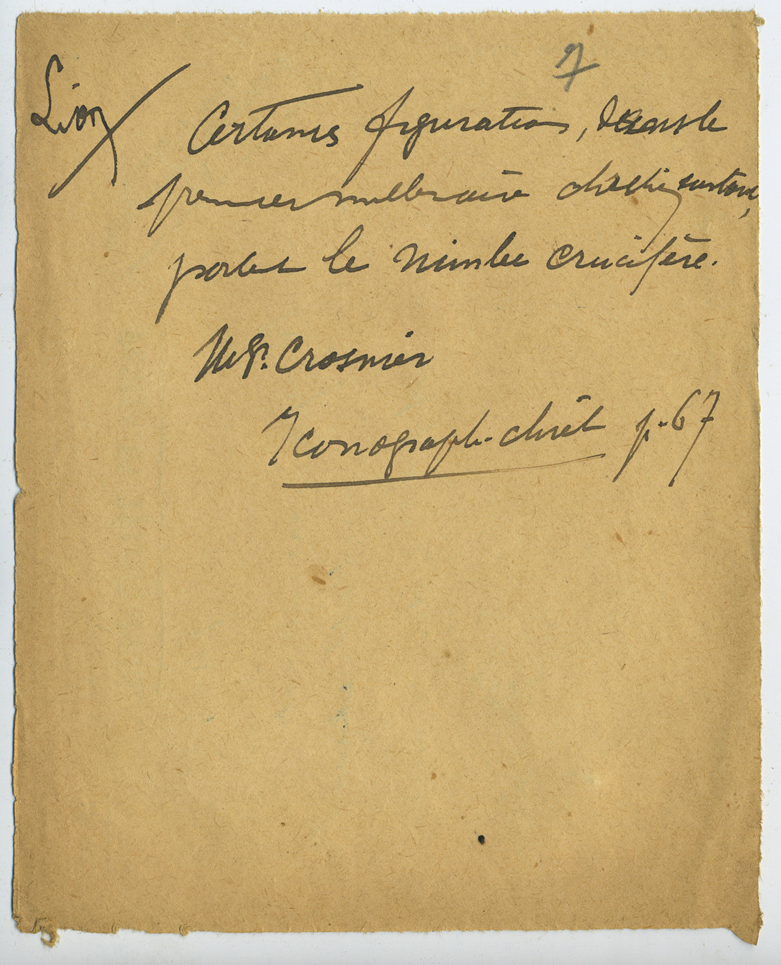 7
Lion
Certaines figurations, dans le
premier millénaire chrétien surtout,
portent le nimbe crucifère.
Mgr. Crosnier
Iconograph. chrét p. 67